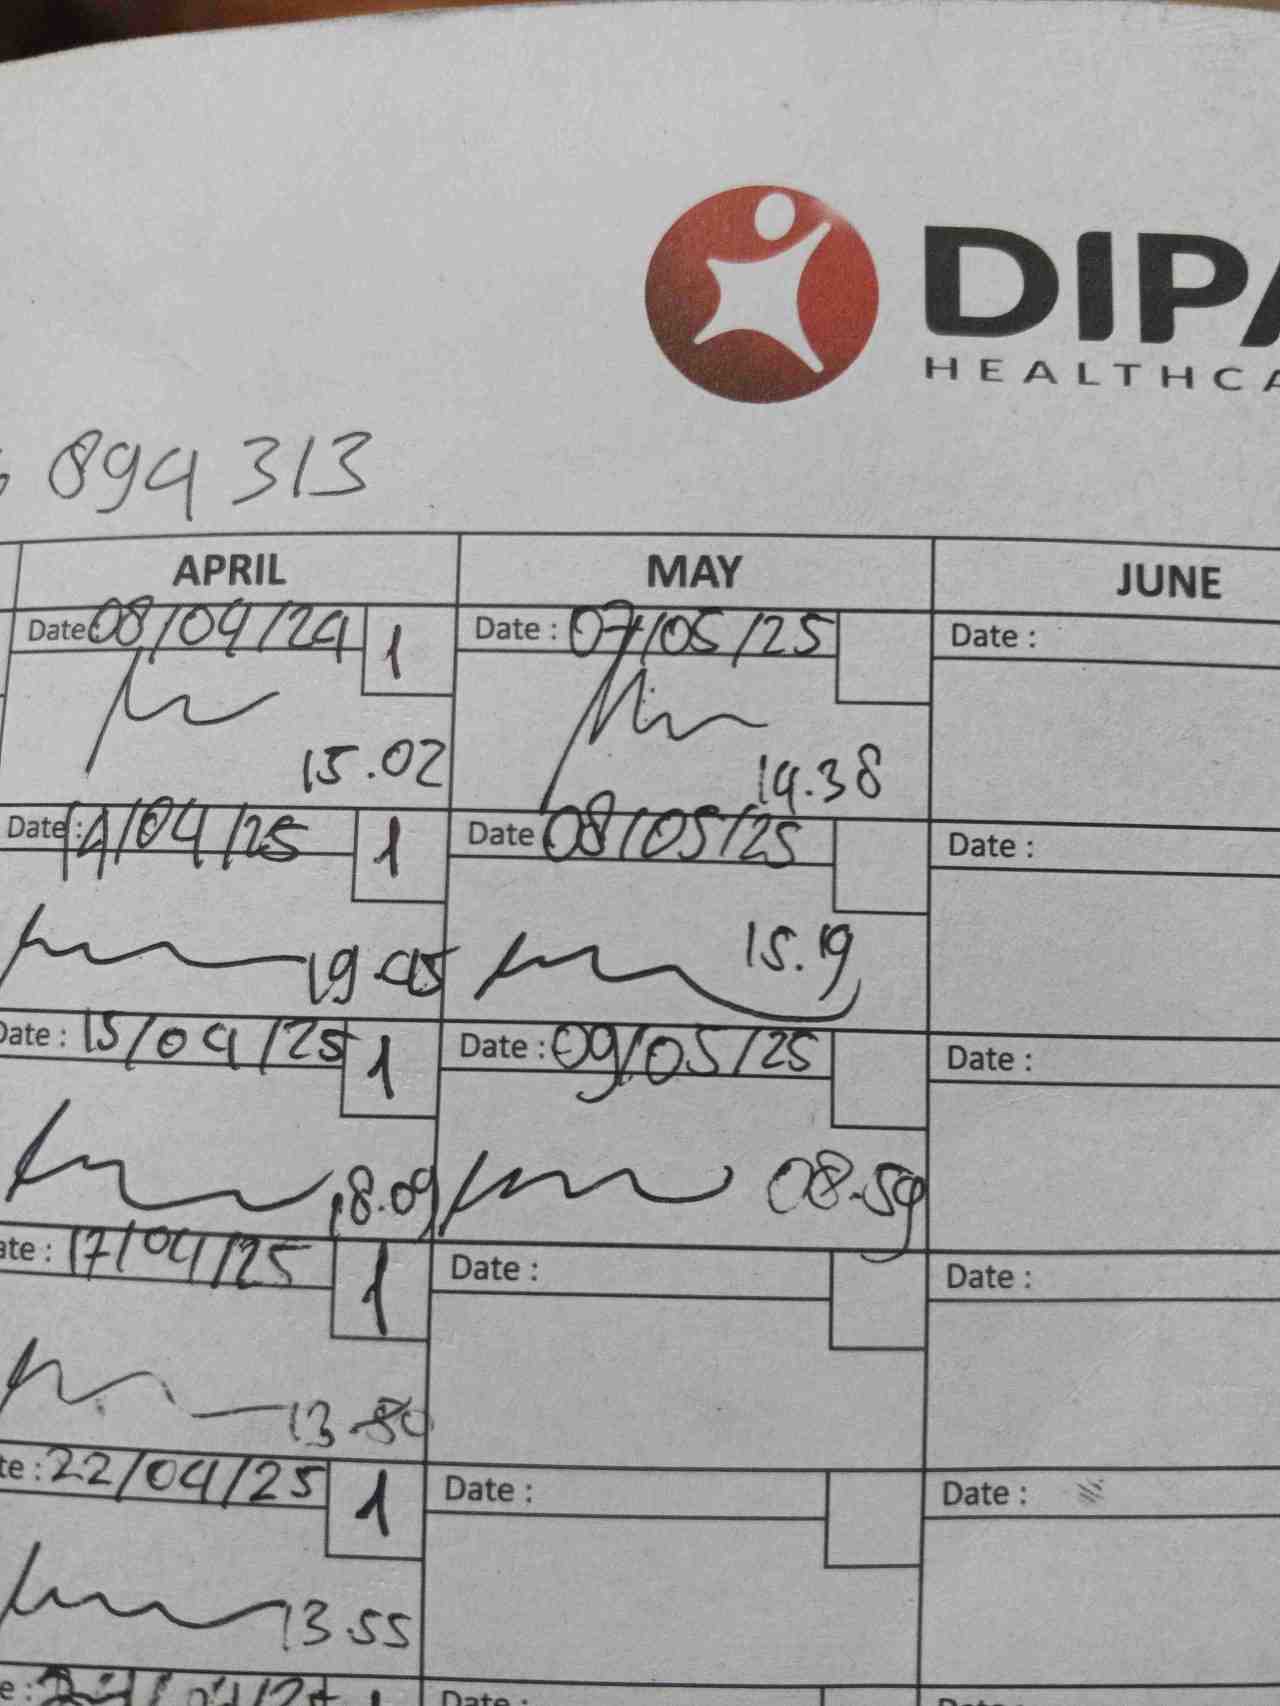 DIPA
HEALTHCA
894 313
APRIL MAY JUNE
Date 08/04/24 1 Date : 07/05/25 Date :
15.02 14.38
Date : 14/04/25 1 Date 08/05/25 Date :
19.45 15.19
Date : 15/04/25 1 Date : 09/05/25 Date :
18.09 08.59
ate : 17/04/25 1 Date : Date :
13
te : 22/04/25 1 Date : Date :
13.55
e : Date : Date :